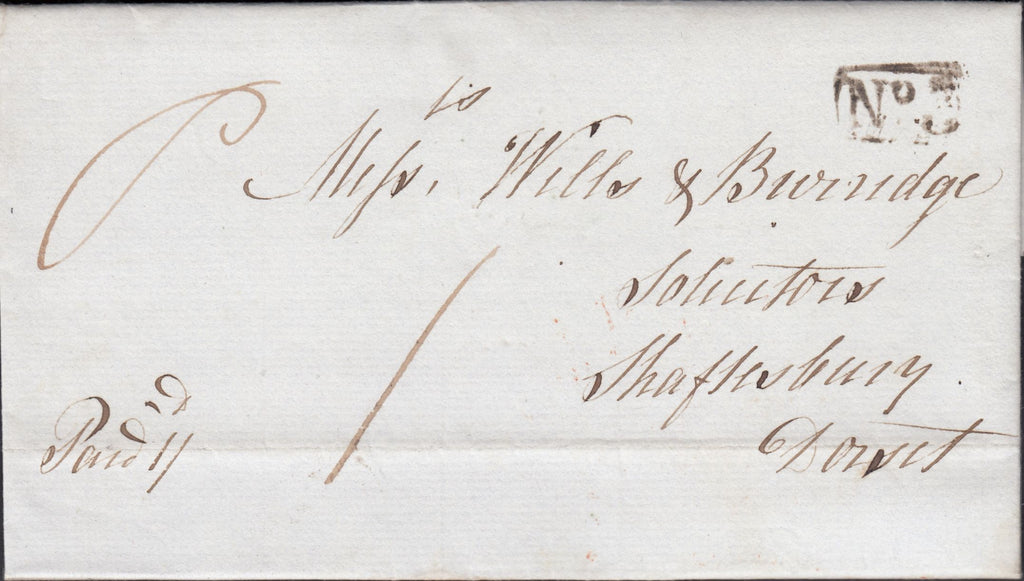 No. 3
P Messrs. Wills & Burridge
Solicitors
Shaftesbury
Dorset
Paid 1d
1